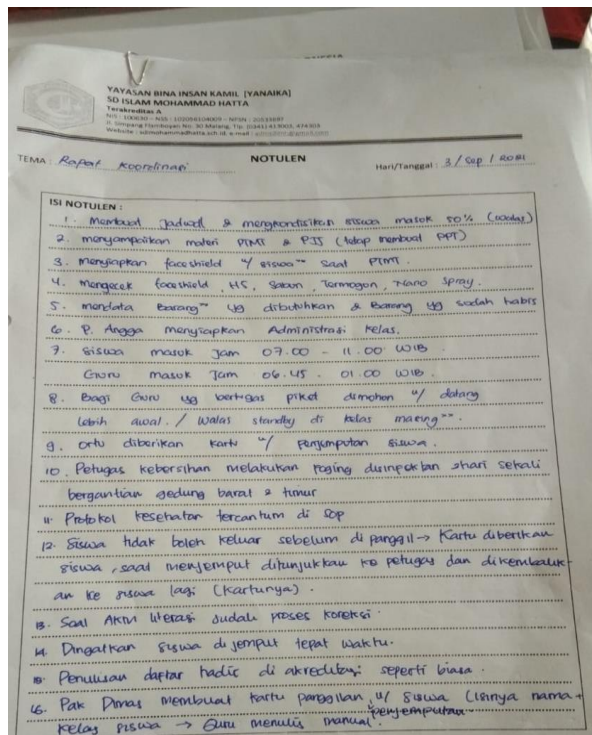 YAYASAN BINA INSAN KAMIL [YANAIKA]
SD ISLAM MOHAMMAD HATTA
Terakreditasi A
Jl. Simpang Flamboyan No. 30 Malang, Tlp. (0341) 413003, 474303
TEMA : Rapat Koordinasi
NOTULEN
Hari/Tanggal : 3 / Sep / 2021
ISI NOTULEN :
1. Membuat Jadwal & mengkondisikan siswa masuk 50% (walas)
2. menyampaikan materi PTMT & PJJ (tetap membuat PPT)
3. Menyiapkan faceshield u/ siswa" saat PTMT.
4. Mengecek faceshield, HS, Sabun, Termogon, Nano Spray.
5. mendata Barang" yg dibutuhkan & Barang yg sudah habis
6. P. Angga menyiapkan Administrasi kelas.
7. Siswa masuk Jam 07.00 - 11.00 WIB
Guru masuk Jam 06.45 - 01.00 WIB.
8. Bagi Guru yg bertugas piket dimohon u/ datang
lebih awal. / walas standby di kelas masing".
9. ortu diberikan kartu u/ penjemputan siswa.
10. Petugas kebersihan melakukan foging disinpektan sekali
bergantian gedung barat & timur
11. Protokol kesehatan tercantum di SOP
12. Siswa tidak boleh keluar sebelum di panggil → Kartu diberikan
siswa, saat menjemput ditunjukkan ke petugas dan dikembalik-
an ke siswa lagi (kartunya).
13. Soal AKM literasi sudah proses koreksi.
14. Dingatkan siswa di jemput tepat waktu.
15. Penulisan daftar hadir di akreditasi seperti biasa.
16. Pak Dimas membuat kartu panggilan u/ siswa (isinya nama +
penjemputan
kelas siswa → Guru menulis manual.